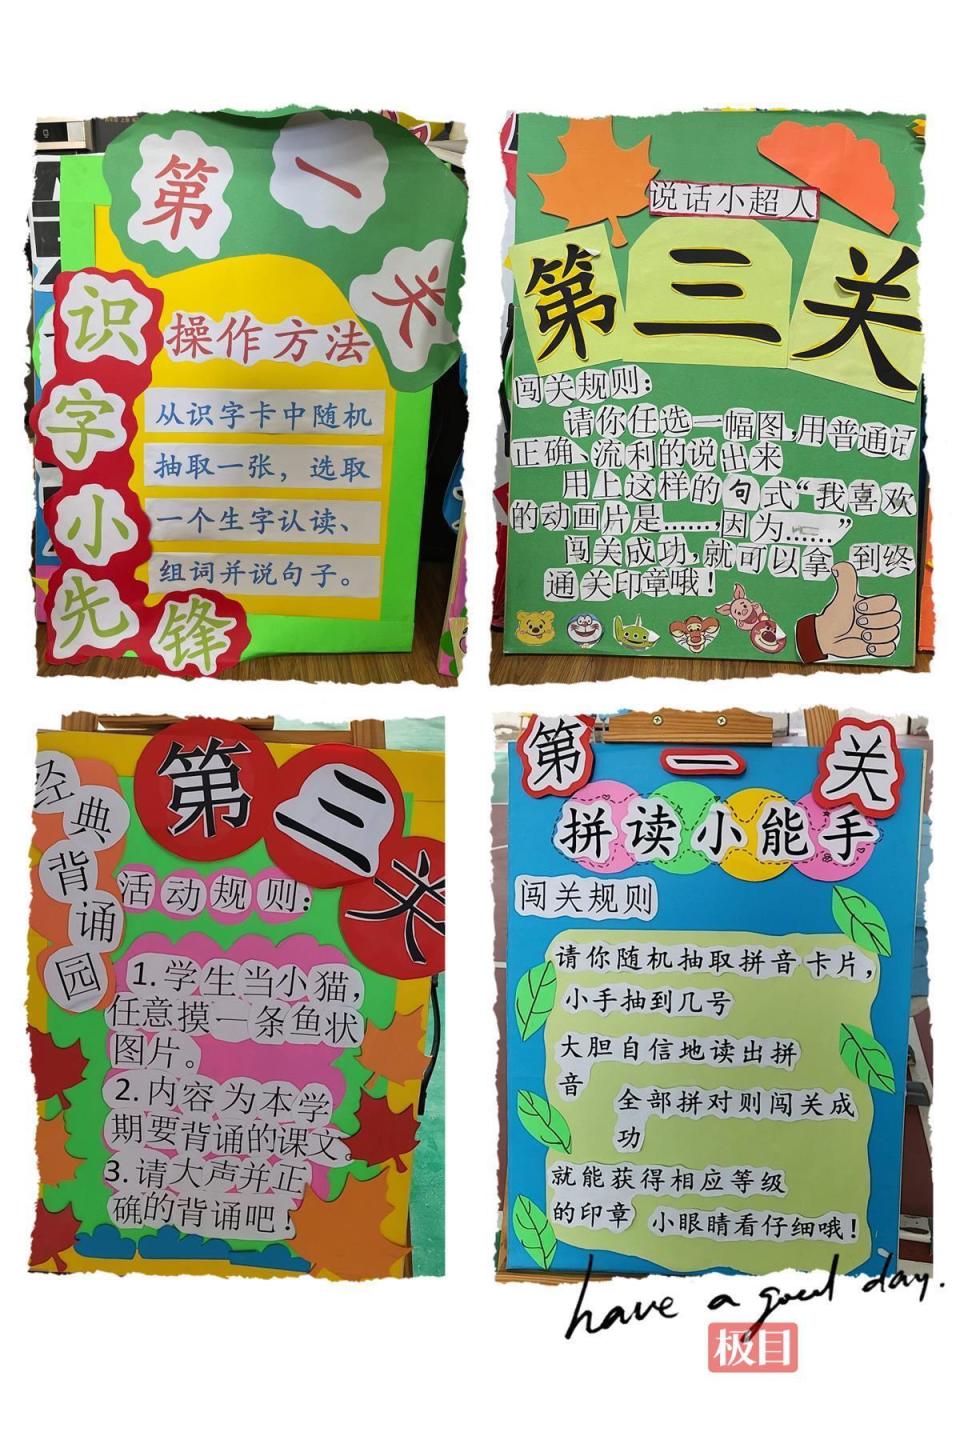 第一关
识字小先锋
操作方法
从识字卡中随机
抽取一张，选取
一个生字认读、
组词并说句子。
说话小超人
第三关
闯关规则：
请你任选一幅图，用普通话
正确、流利的说出来
用上这样的句式“我喜欢
的动画片是……，因为……”
闯关成功，就可以拿到终
通关印章哦！
第三关
经典背诵园
活动规则：
1.学生当小猫，
任意摸一条鱼状
图片。
2.内容为本学
期要背诵的课文。
3.请大声并正
确的背诵吧！
第一关
拼读小能手
闯关规则
请你随机抽取拼音卡片，
小手抽到几号
大胆自信地读出拼
音
全部拼对则闯关成
功
就能获得相应等级
的印章 小眼睛看仔细哦！
have a good day.
极目